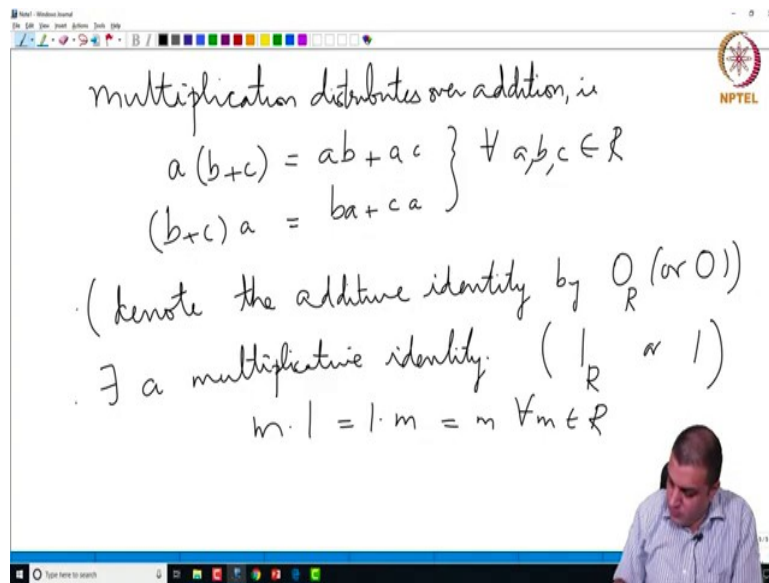 Note1 - Windows Journal
File Edit View Insert Actions Tools Help
NPTEL
multiplication distributes over addition, ie
a(b+c) = ab + ac } ∀ a,b,c ∈ R
(b+c)a = ba + ca
(denote the additive identity by 0_R (or 0))
∃ a multiplicative identity. (1_R or 1)
m·1 = 1·m = m ∀m ∈ R
Type here to search